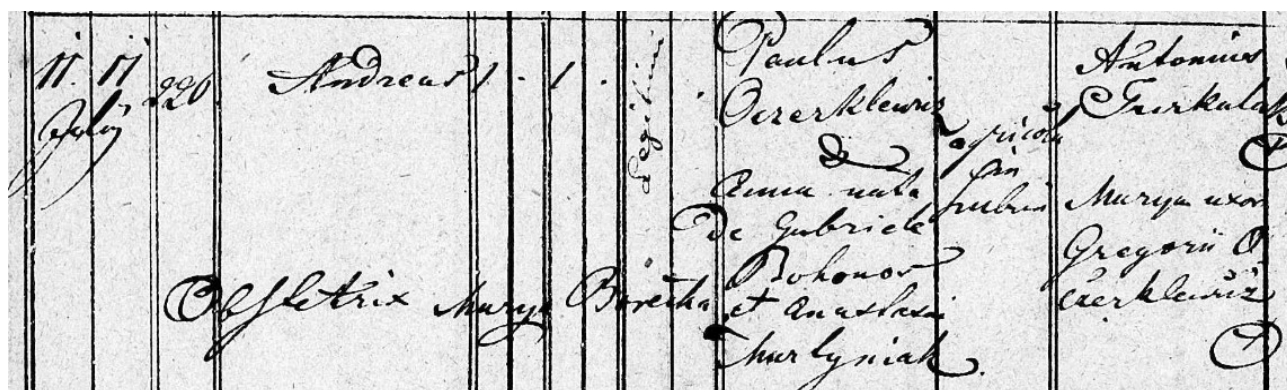 11 11 July
220
Andreas 1 . 1 .
Legitimi
Paulus
Oczerklewicz
&
Anna nata
de Gabriele
Bohonos
et Anastasia
Martyniak
agricola
in
Antonius
Turkulak
+
Marya uxor
Gregorii O
czerklewicz
+
Obstetrix Marya